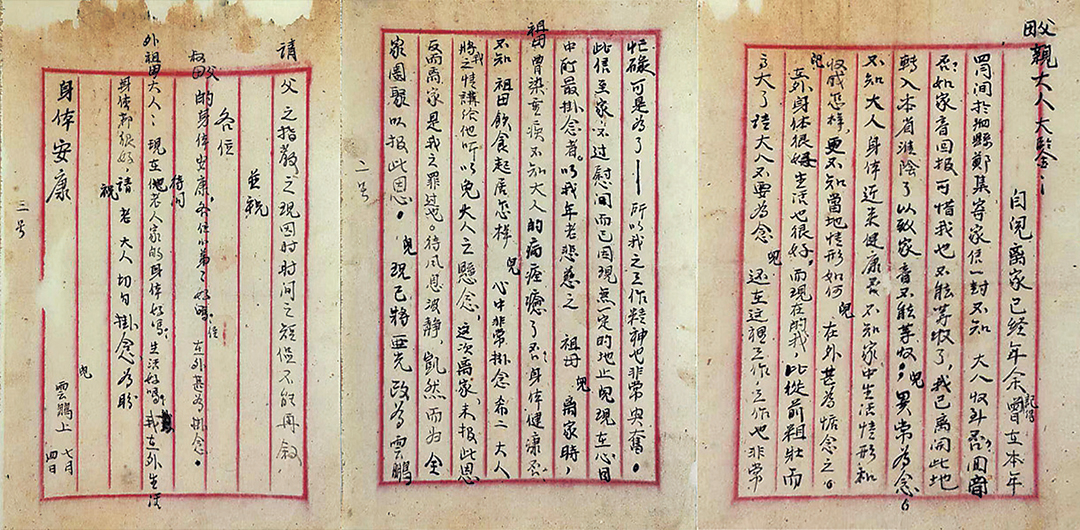 父母親大人大鑒：
自兒离家已經年余曾記得在本年
四月间於泗縣鄭集寄家信一封不知 大人收到否？回音
否如家音回报可惜我也不能等收了，我已离開此地
轉入本省淮陰了以致家音不能等收，兒异常为念。
不知大人身体近来健康否 不知家中生活情形和
收成怎样，更不知當地情形如何 兒在外甚為惦念之。
兒在外身体很好生活也很好。而現在的我，比從前粗壮而
高大了 請大人不要為念 兒还在这裡工作 工作也非常
忙碌可是為了——所以我之工作精神也非常兴奮。
此信至家，不过慰问而已因現無一定的地止兒現在心目
中所最掛念者。以我年老悲慈之 祖母 兒离家時，
祖母曾染重疾不知大人的病痊癒了否？身体健康否
不知 祖母飲食起居怎样 兒心中非常掛念希二大人
將我之情講给他听以免大人之懸念，这次离家，未报此恩
反而离家是我之罪也。待风息波静，凱然而归 全
家團聚以报此恩。 兒現已將亚光改為雲鵬
二号
請父之指教之現因时时间之短促不能再叙
並祝
各位
叔父母的身体安康，各位小弟了好吗？侄在外甚為掛念。
待问
外祖母大人：現在他老人家的身体好吗？生活好吗？我在外生活
身体都很好請 老大人切勿掛念為盼
祝
身体安康
兒 雲鵬上 七月四日
三号